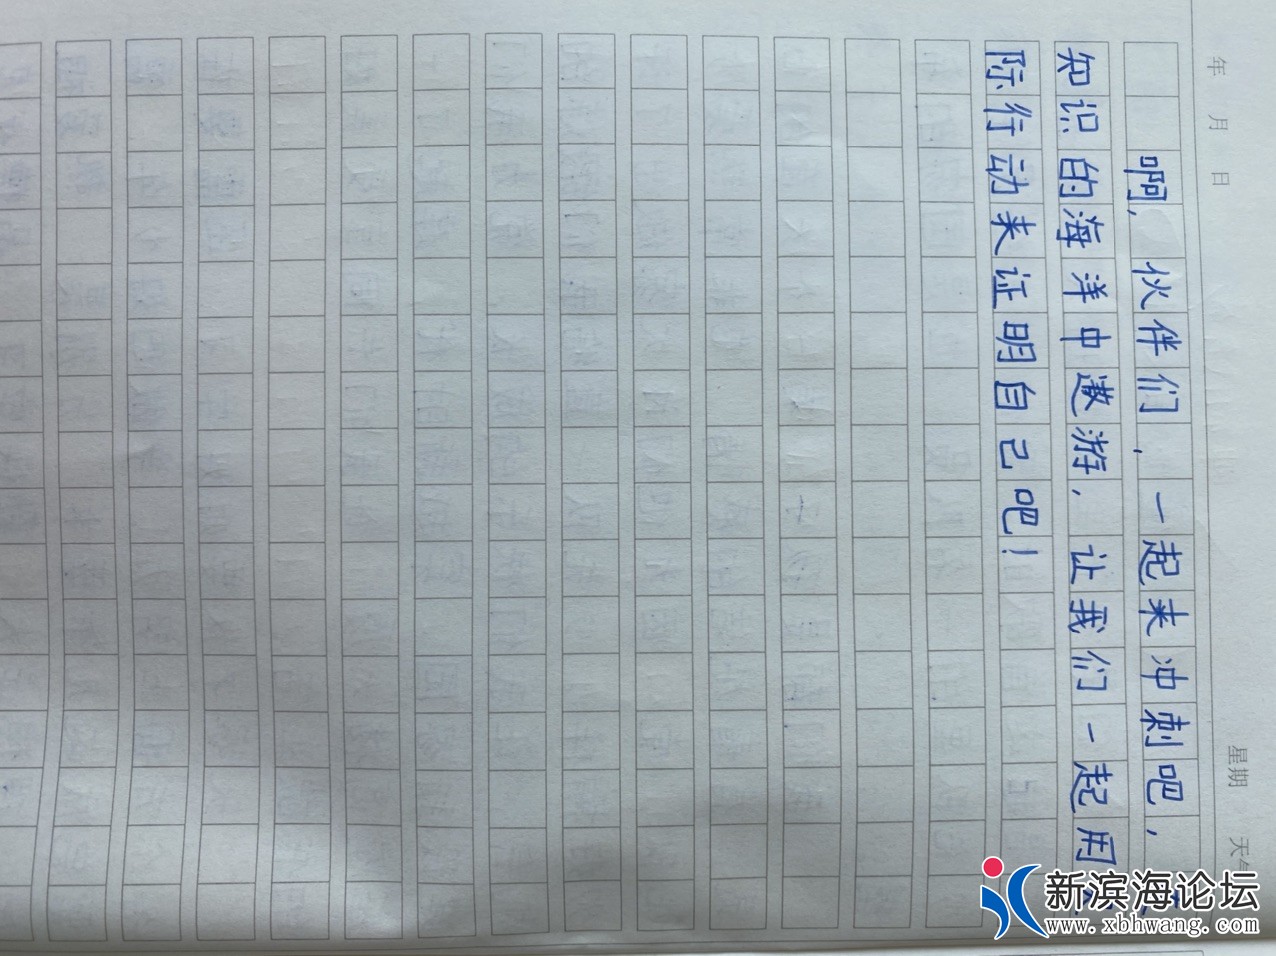 年 月 日 星期 天气
啊，伙伴们，一起来冲刺吧，
知识的海洋中遨游，让我们一起用
际行动来证明自己吧！
新滨海论坛
www.xbhwang.com